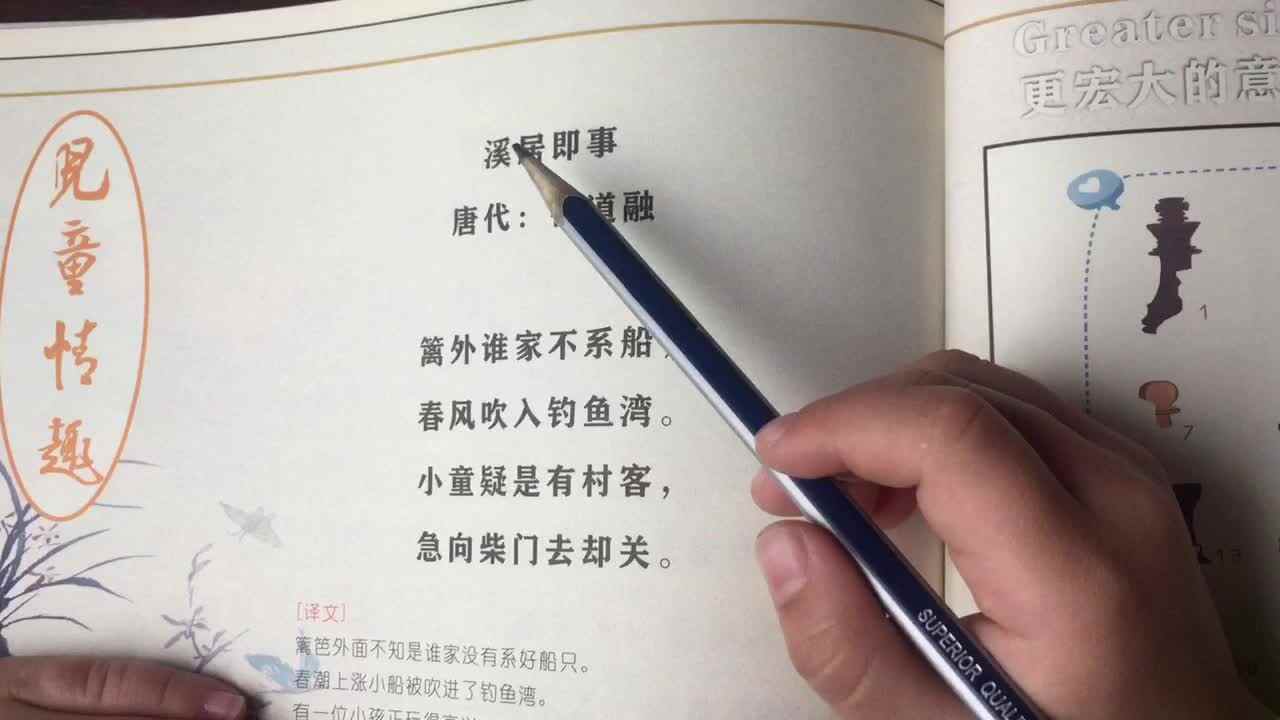 兒童情趣
溪居即事
唐代：道融
篱外谁家不系船，
春风吹入钓鱼湾。
小童疑是有村客，
急向柴门去却关。
[译文]
篱笆外面不知是谁家没有系好船只。
春潮上涨小船被吹进了钓鱼湾。
有一位小孩正玩得高兴
Greater si
更宏大的意
1
7
13
SUPERIOR QUAL